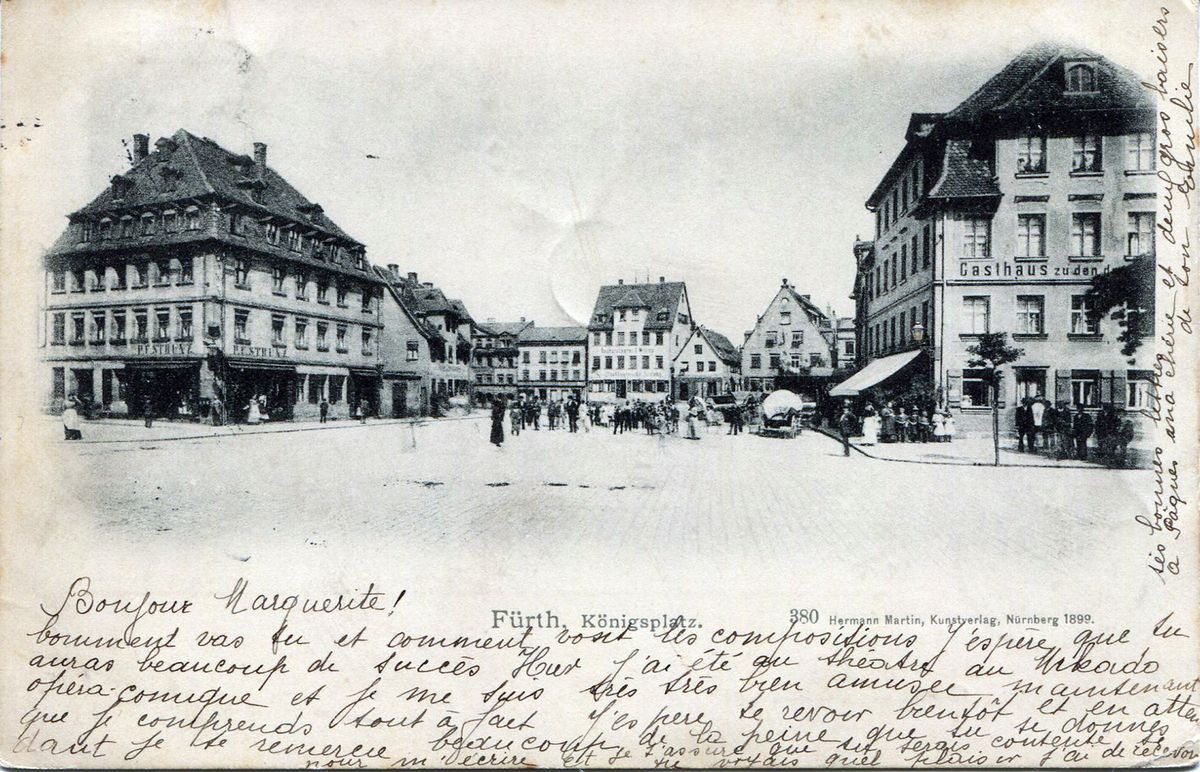 P. E. STRENZ
P. E. STRENZ
Gasthaus zu den d
Fürth, Königsplatz.
380 Hermann Martin, Kunstverlag, Nürnberg 1899.
Bonjour Marguerite!
Comment vas tu et comment vont tes compositions J'espère que tu
auras beaucoup de succès Hier j'ai été au théatre au Mikado
opéra-comique et je me suis très très bien amusée maintenant
que je comprends tout à fait J'espère te revoir bientôt et en atten
dant je te remercie beaucoup de la peine que tu te donnes
pour m'écrire et je t'assure que tu serais contente
si tu voyais quel plaisir j'ai de recevoir
tes bonnes lettres
à Pâques ma chérie et deux gros baisers
de ton Emilie